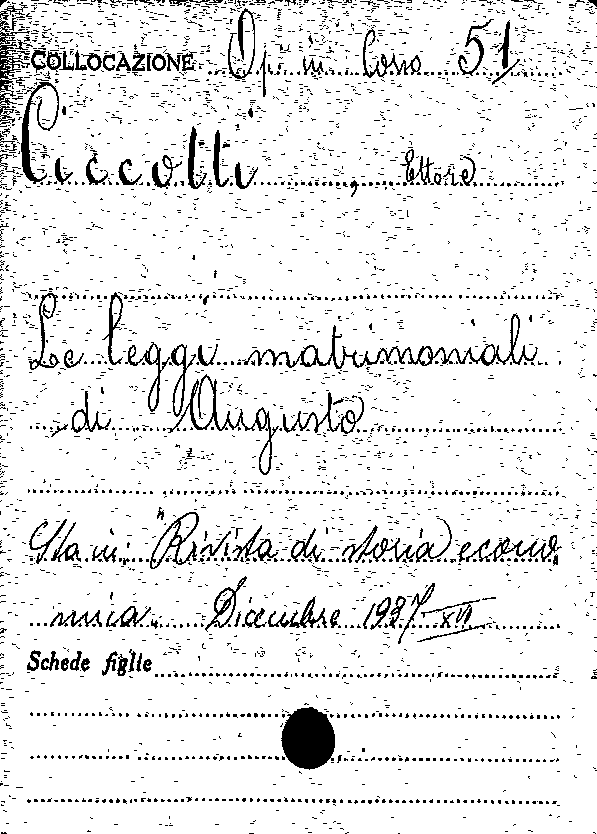 COLLOCAZIONE Op. in Corso 51
Ciccotti, Ettore
Le leggi matrimoniali
di Augusto
Sta in: "Rivista di storia econo
mica. Dicembre 1937 - XVI
Schede figlie